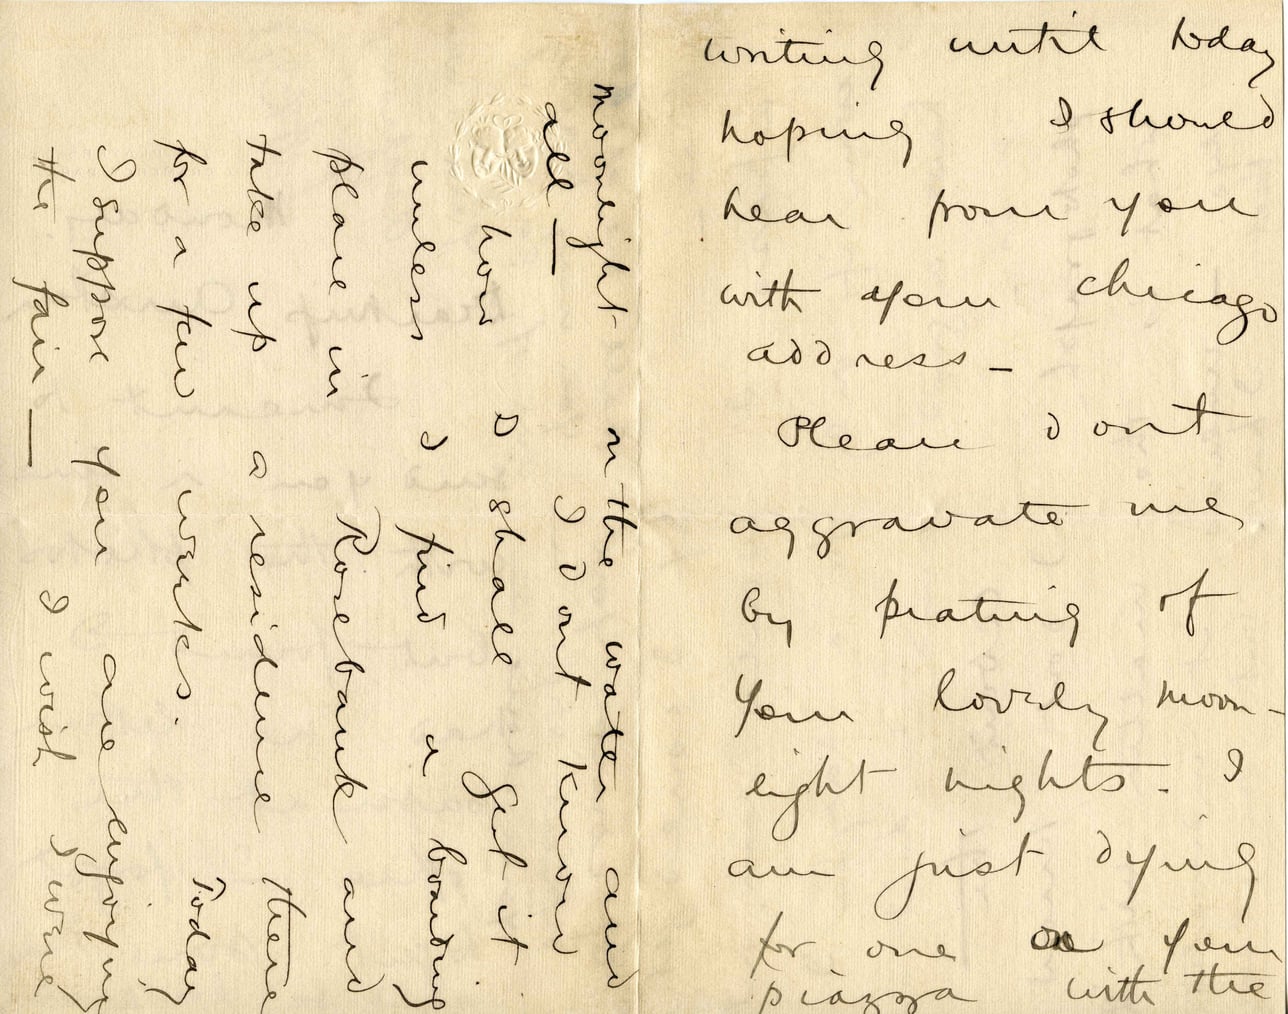 writing until today
hoping I should
hear from you
with your Chicago
address -
Please dont
aggravate me
by prating of
your lovely moon-
light nights. I
am just dying
for one on your
piazza with the
moonlight on the water and
all — I dont know
how I shall get it
unless I find a boarding
place in Rosebank and
take up a residence there
for a few weeks. Today
I suppose you are enjoying
the fair — I wish I were